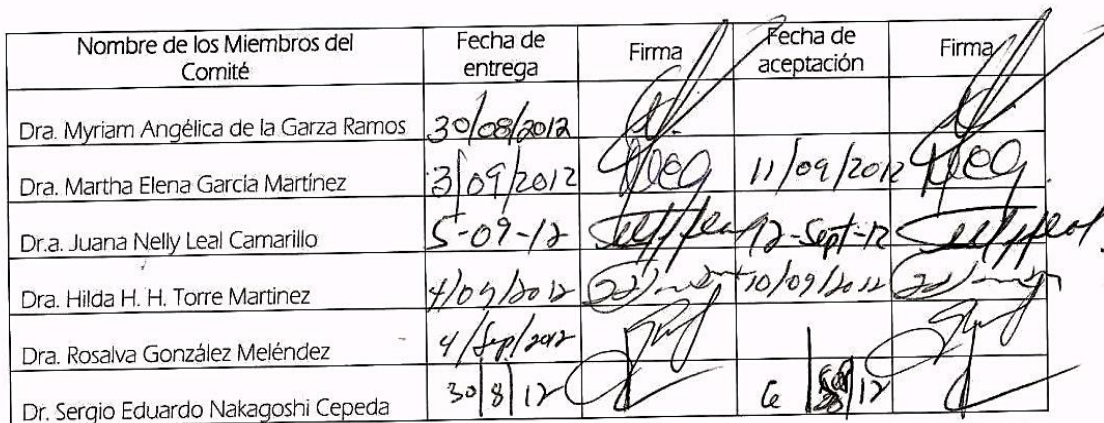 Nombre de los Miembros del Comité
Fecha de entrega
Firma
Fecha de aceptación
Firma
Dra. Myriam Angélica de la Garza Ramos 30/08/2012
Dra. Martha Elena García Martínez 3/09/2012 11/09/2012
Dr.a. Juana Nelly Leal Camarillo 5-09-12 12-Sept-12
Dra. Hilda H. H. Torre Martinez 4/09/2012 10/09/2012
Dra. Rosalva González Meléndez 4/Sep/2012
Dr. Sergio Eduardo Nakagoshi Cepeda 30/8/12 6 12